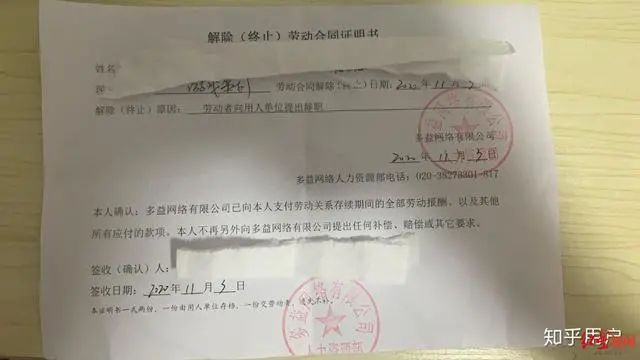 解除(终止)劳动合同证明书
姓名
劳动合同解除(终止)日期:2020年11月2
解除(终止)原因: 劳动者向用人单位提出辞职
多益网络有限公司
2020年11月3日
多益网络人力资源部电话:020-38273301-817
本人确认:多益网络有限公司已向本人支付劳动关系存续期间的全部劳动报酬、以及其他
所有应付的款项。本人不再另外向多益网络有限公司提出任何补偿、赔偿或其它要求。
签收(确认)人:
签收日期: 2020年11月3日
本证明书一式两份,一份由用人单位存档,一份交劳动者,遗失不补。
多益网络有限公司
知乎用户